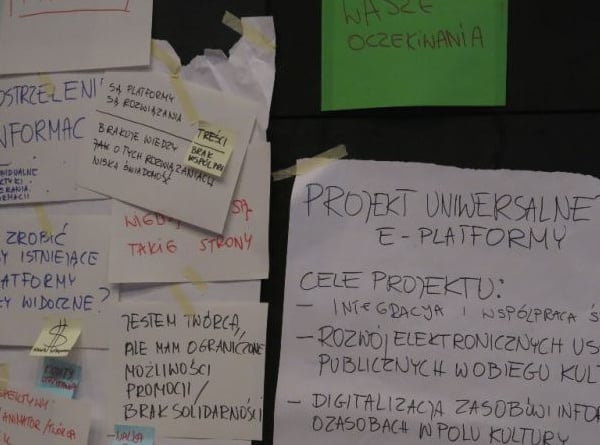 WASZE
OCZEKIWANIA
SĄ PLATFORMY
SĄ ROZWIĄZANIA
BRAKUJE WIEDZY
O TYCH ROZWIĄZANIACH
NISKA ŚWIADOMOŚĆ
TREŚCI
BRAK
OSTRZELENI
NFORMAC
SĄ
TAKIE STRONY
ZROBIĆ
BY ISTNIEJĄCE
ATFORMY
WIDOCZNE?
$
JESTEM TWÓRCĄ,
ALE MAM OGRANICZONE
MOŻLIWOŚCI
PROMOCJI/
BRAK SOLIDARNOŚCI
PROJEKT UNIWERSALNE
E-PLATFORMY
CELE PROJEKTU:
- INTEGRACJA I WSPÓŁPRACA Ś
- ROZWÓJ ELEKTRONICZNYCH US
PUBLICZNYCH W OBIEGU KUL
- DIGITALIZACJA ZASOBÓW I INFO
O ZASOBACH W POLU KULTURY